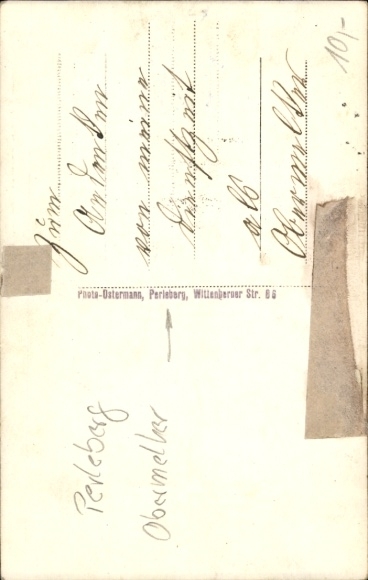 Zum
Andenken
von meine
Dienstzeit
als
Obermelker
Photo-Ostermann, Perleberg, Wittenberger Str. 86
Perleberg
Obermelker
10,-